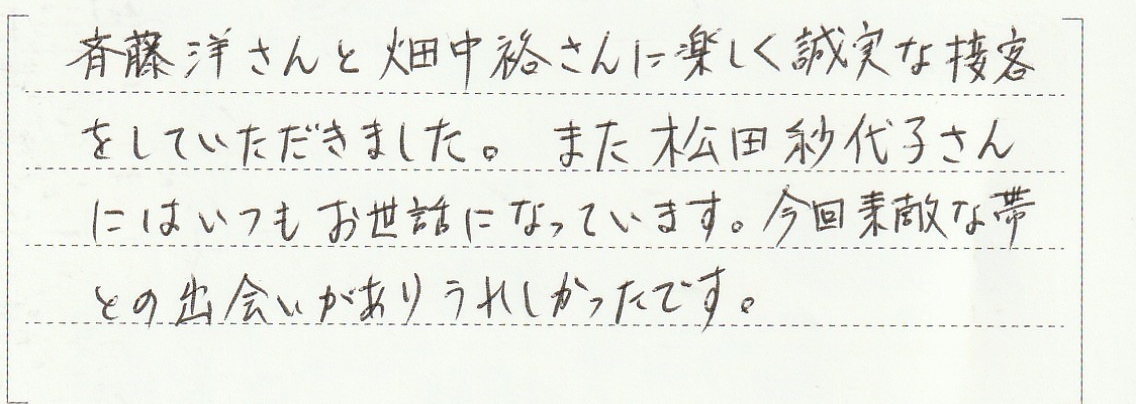 斉藤洋さんと畑中裕さんに楽しく誠実な接客
をしていただきました。また松田紗代子さん
にはいつもお世話になっています。今回素敵な帯
との出会いがありうれしかったです。